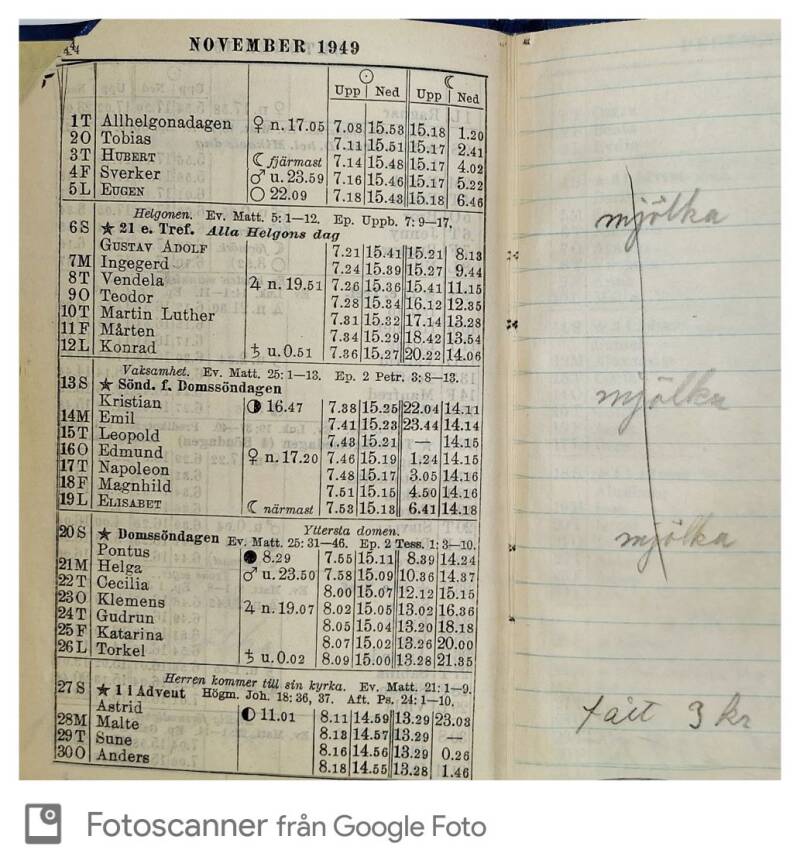 NOVEMBER 1949
☉ ☾
Upp Ned Upp Ned
1 T Allhelgonadagen ♀ n. 17.05 7.08 15.53 15.18 1.20
2 O Tobias 7.11 15.51 15.17 2.41
3 T HUBERT ☾ fjärmast 7.14 15.48 15.17 4.02
4 F Sverker ♂ u. 23.59 7.16 15.46 15.17 5.22
5 L EUGEN ○ 22.09 7.18 15.43 15.18 6.46
Helgonen. Ev. Matt. 5: 1—12. Ep. Uppb. 7: 9—17.
6 S ★ 21 e. Tref. Alla Helgons dag
GUSTAV ADOLF 7.21 15.41 15.21 8.13
7 M Ingegerd 7.24 15.39 15.27 9.44
8 T Vendela ♃ n. 19.51 7.26 15.36 15.41 11.15
9 O Teodor 7.28 15.34 16.12 12.35
10 T Martin Luther 7.31 15.32 17.14 13.28
11 F Mårten 7.34 15.29 18.42 13.54
12 L Konrad ♄ u. 0.51 7.36 15.27 20.22 14.06
Vaksamhet. Ev. Matt. 25: 1—13. Ep. 2 Petr. 3: 8—13.
13 S ★ Sönd. f. Domssöndagen
Kristian ◑ 16.47 7.38 15.25 22.04 14.11
14 M Emil 7.41 15.23 23.44 14.14
15 T Leopold 7.43 15.21 — 14.15
16 O Edmund ♀ n. 17.20 7.46 15.19 1.24 14.15
17 T Napoleon 7.48 15.17 3.05 14.16
18 F Magnhild 7.51 15.15 4.50 14.16
19 L ELISABET ☾ närmast 7.53 15.13 6.41 14.18
Yttersta domen.
20 S ★ Domssöndagen Ev. Matt. 25: 31—46. Ep. 2 Tess. 1: 3—10.
Pontus ● 8.29 7.55 15.11 8.39 14.24
21 M Helga ♂ u. 23.50 7.58 15.09 10.36 14.37
22 T Cecilia 8.00 15.07 12.12 15.15
23 O Klemens ♃ n. 19.07 8.02 15.05 13.02 16.36
24 T Gudrun 8.05 15.04 13.20 18.18
25 F Katarina 8.07 15.02 13.26 20.00
26 L Torkel ♄ u. 0.02 8.09 15.00 13.28 21.35
Herren kommer till sin kyrka. Ev. Matt. 21: 1—9.
27 S ★ 1 i Advent Högm. Joh. 18: 36, 37. Aft. Ps. 24: 1—10.
Astrid ◐ 11.01 8.11 14.59 13.29 23.03
28 M Malte 8.13 14.57 13.29 —
29 T Sune 8.16 14.56 13.29 0.26
30 O Anders 8.18 14.55 13.28 1.46
mjölka
mjölka
mjölka
3 kr
Fotoscanner från Google Foto